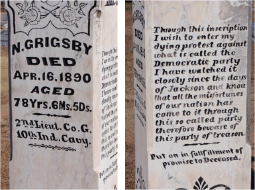 N. GRIGSBY
DIED
APR. 16, 1890
AGED
78 Yrs. 6 Ms. 5 Ds.
2nd Lieut. Co. G.
10th Ind. Cavy.
Through this inscription
I wish to enter my
dying protest against
what is called the
Democratic party
I have watched it
closely since the days
of Jackson and know
that all the misfortunes
of our nation has
come to it through
this so called party
therefore beware of
this party of treason.
Put on in fulfillment of
promise to Deceased.